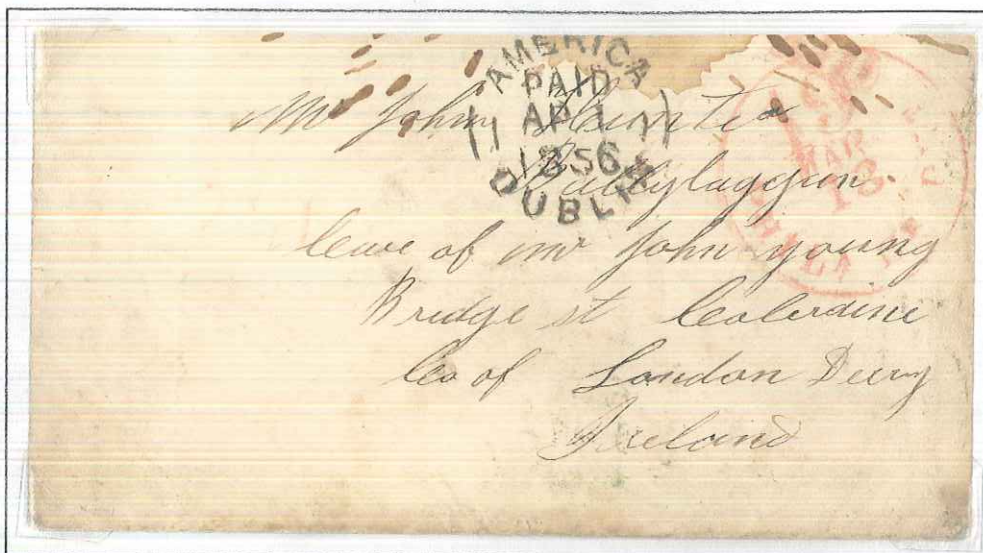 AMERICA
PAID
AP 1
1856
DUBLIN
MAR
18
Mr John Hunter
leave of mr John young
Bridge st Coleraine
Co of London Derry
Ireland